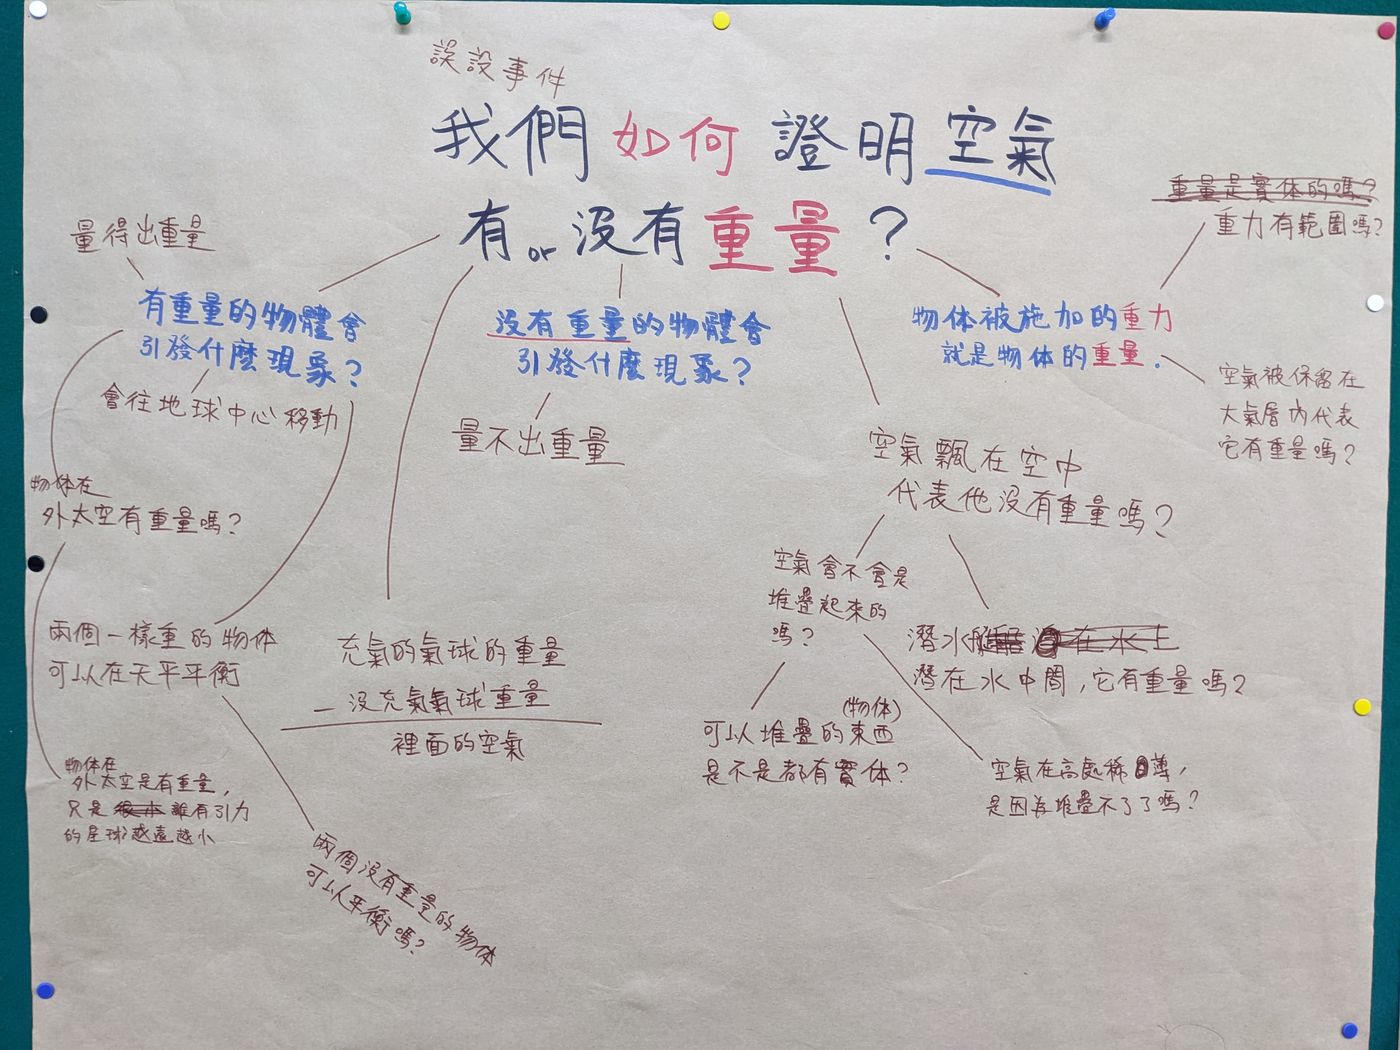 誤設事件
我們如何證明空氣
有or沒有重量？
量得出重量
有重量的物體會
引發什麼現象？
會往地球中心移動
物体在
外太空有重量嗎？
兩個一樣重的物体
可以在天平平衡
物体在
外太空是有重量，
只是離有引力
的星球越遠越小
兩個沒有重量的物体
可以平衡嗎？
充氣的氣球的重量
－沒充氣氣球重量
裡面的空氣
沒有重量的物體會
引發什麼現象？
量不出重量
空氣飄在空中
代表他沒有重量嗎？
空氣會不會是
堆疊起來的
嗎？
(物体)
可以堆疊的東西
是不是都有實体？
空氣在高處稀薄，
是因為堆疊不了了嗎？
潛水艇在水上
潛在水中間，它有重量嗎？
物体被施加的重力
就是物体的重量.
重量是實体的嗎？
重力有範圍嗎？
空氣被保留在
大氣層內代表
它有重量嗎？